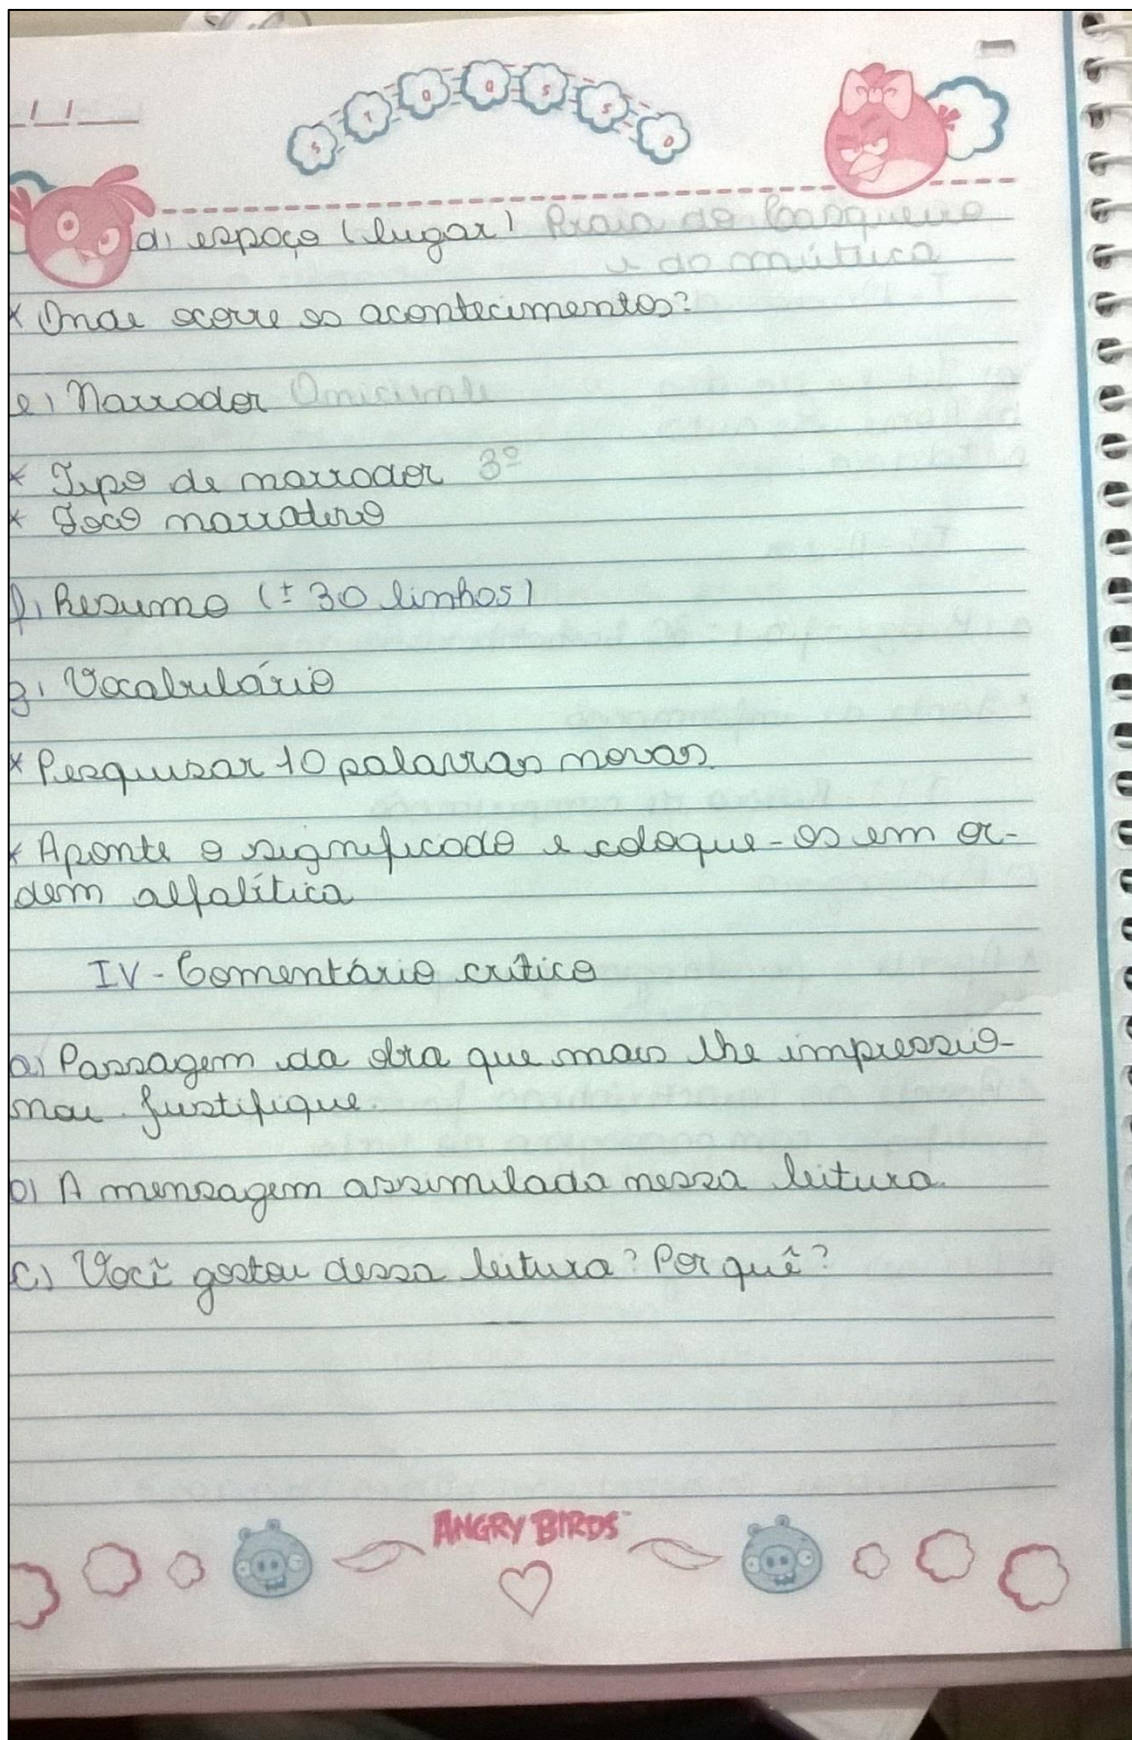 S T Q Q S S D
d) espaço (lugar) Praia do
e do
* Onde ocorre os acontecimentos?
e) Narrador Onisciente
* Tipo de narrador 3º
* Foco narrativo
f) Resumo (± 30 linhas)
g) Vocabulário
* Pesquisar 10 palavras novas.
* Aponte o significado e coloque-os em or-
dem alfalítica
IV - Comentário crítico
a) Passagem da obra que mais lhe impressio-
nou. Justifique.
b) A mensagem assimilada nessa leitura.
c) Você gostou dessa leitura? Por quê?
ANGRY BIRDS